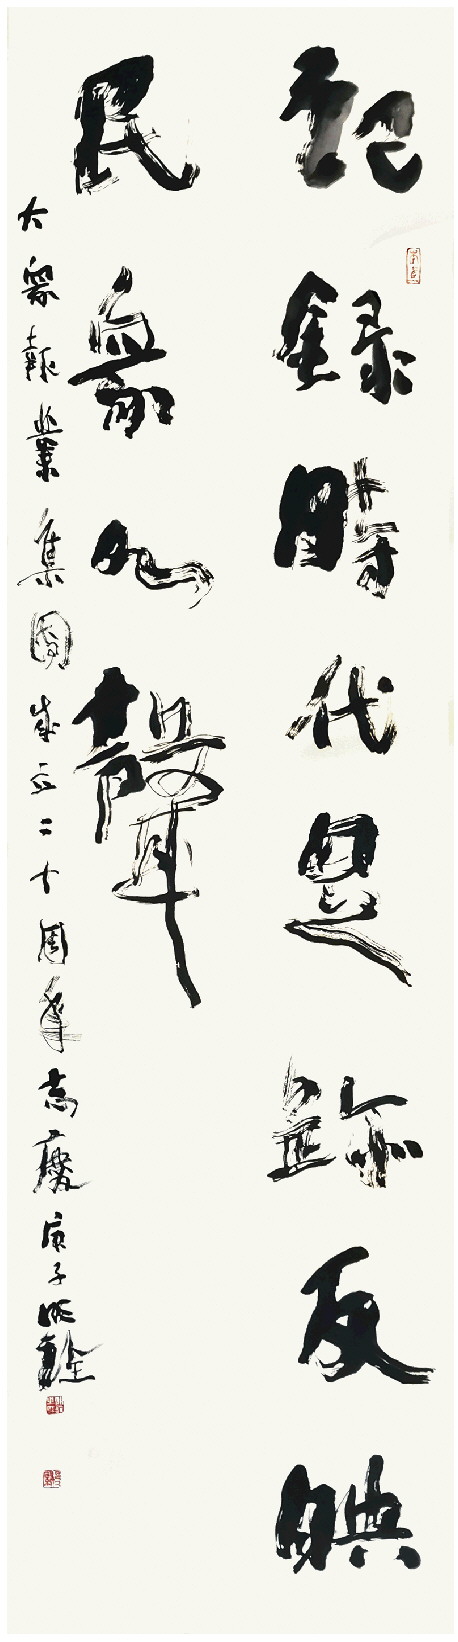 記録時代足跡反映
民衆心聲
大衆報業集團成立二十周年志慶庚子